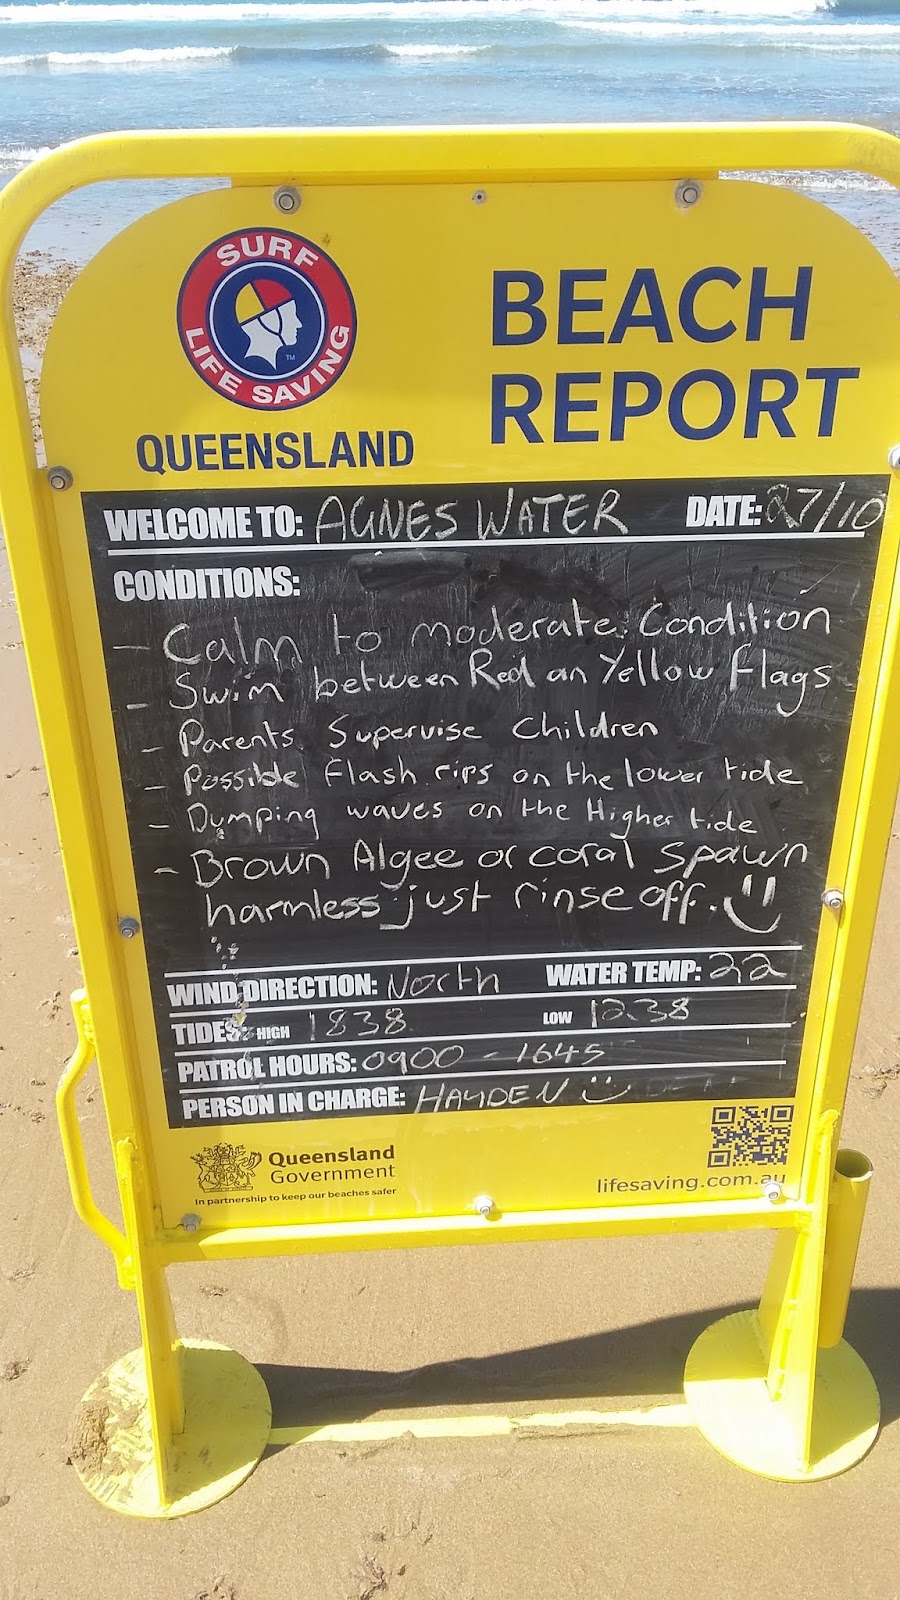 SURF
LIFE SAVING
TM
QUEENSLAND
BEACH
REPORT
WELCOME TO: AGNES WATER DATE: 27/10
CONDITIONS:
- Calm to moderate Condition
- Swim between Red an Yellow flags
- Parents Supervise Children
- Possible flash rips on the lower tide
- Dumping waves on the Higher tide
- Brown Algee or coral spawn
harmless just rinse off.
WIND DIRECTION: North WATER TEMP: 22
TIDES: HIGH 1838 LOW 1238
PATROL HOURS: 0900 - 1645
PERSON IN CHARGE: HAYDEN
Queensland
Government
In partnership to keep our beaches safer
lifesaving.com.au